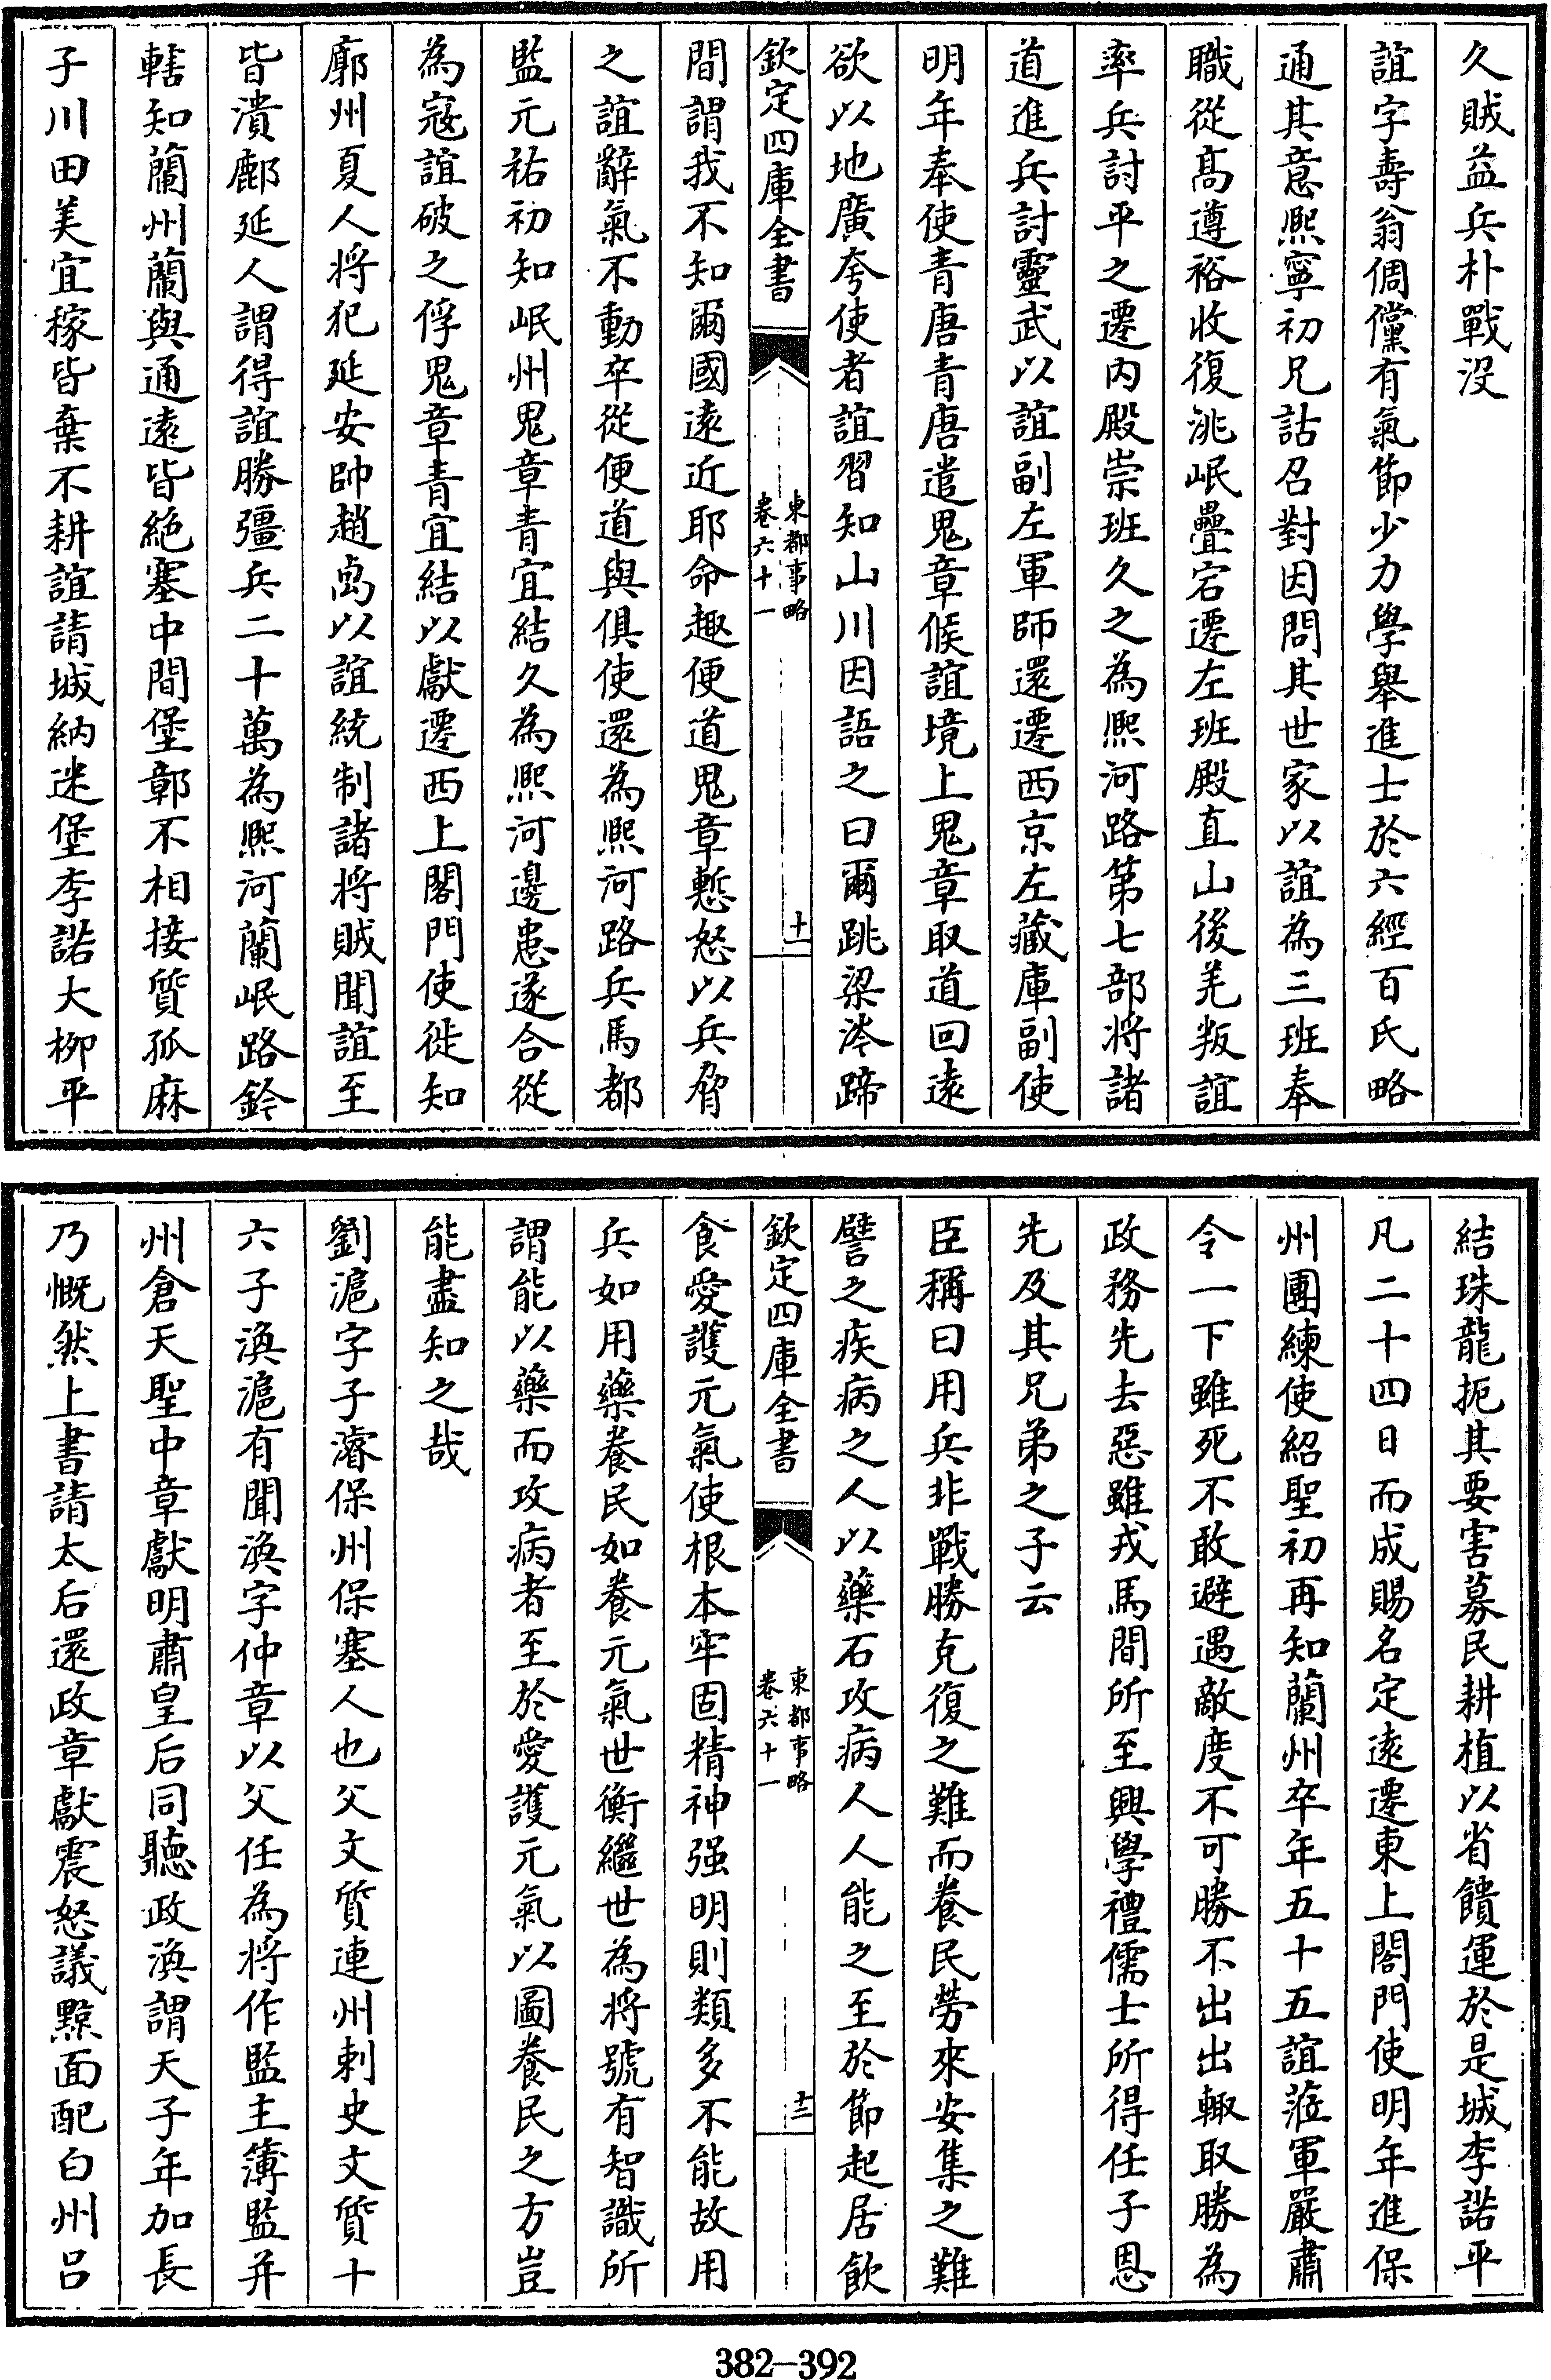 久賊益兵朴戰没
誼字壽翁倜儻有氣節少力學舉進士於六經百氏略
通其意熙寧初兄詁召對因問其世家以誼為三班奉
職從髙遵裕收復洮岷疊宕遷左班殿直山後羌叛誼
率兵討平之遷内殿崇班久之為熙河路第七部將諸
道進兵討靈武以誼副左軍師還遷西京左藏庫副使
明年奉使青唐青唐遣鬼章候誼境上鬼章取道回逺
欲以地廣夸使者誼習知山川因語之曰爾跳梁涔蹄
欽定四庫全書
東都事略
卷六十一
十一
間謂我不知爾國逺近耶命趣便道鬼章慙怒以兵脅
之誼辭氣不動卒從便道與俱使還為熙河路兵馬都
監元祐初知岷州鬼章青宜結久為熙河邊患遂合從
為寇誼破之俘鬼章青宜結以獻遷西上閤門使徙知
鄜州夏人將犯延安帥趙卨以誼統制諸將賊聞誼至
皆潰鄜延人謂得誼勝彊兵二十萬為熙河蘭岷路鈐
轄知蘭州蘭與通逺皆絶塞中間堡鄣不相接質孤麻
子川田美宜稼皆棄不耕誼請城納迷堡李諾大柳平
結珠龍扼其要害募民耕植以省饋運於是城李諾平
凡二十四日而成賜名定逺遷東上閤門使明年進保
州團練使紹聖初再知蘭州卒年五十五誼蒞軍嚴肅
令一下雖死不敢避遇敵度不可勝不出出輒取勝為
政務先去惡雖戎馬間所至興學禮儒士所得任子恩
先及其兄弟之子云
臣稱曰用兵非戰勝克復之難而養民勞來安集之難
譬之疾病之人以藥石攻病人人能之至於節起居飲
欽定四庫全書
東都事略
卷六十一
十二
食愛護元氣使根本牢固精神强明則類多不能故用
兵如用藥養民如養元氣世衡繼世為將號有智識所
謂能以藥而攻病者至於愛護元氣以圖養民之方豈
能盡知之哉
劉滬字子濬保州保塞人也父文質連州刺史文質十
六子渙滬有聞渙字仲章以父任為將作監主簿監并
州倉天聖中章獻明肅皇后同聽政渙謂天子年加長
乃慨然上書請太后還政章獻震怒議黥面配白州吕
382—392